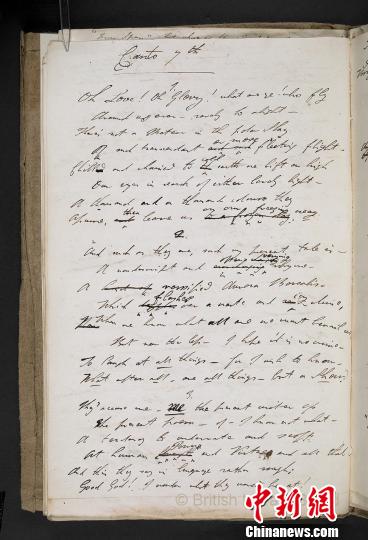 Canto 7th
1
Oh Love! Oh Glory! what are ye! who fly
Around us ever rarely to alight
There's not a Meteor in the polar Sky
Of such transcendent and more fleeting flight
Chill and chained to earth we lift on high
Our eyes in search of either lovely light
A thousand and a thousand colours they
Assume, then leave us on our freezing way
2
And such as they are, such my present tale is
A nondescript and ever varying rhyme
A versified Aurora Borealis
Which flashes over a waste and icy clime
When we know what all are we must bewail us
But ne'er the less I hope it is no crime
To laugh at all things for I wish to know
What after all, are all things but a Show?
3
They accuse me Me the present writer of
The present poem of I know not what
A tendency to underrate and scoff
At human power and Virtue and all that
And this they say in language rather rough
Good God! I wonder what they would be at!
© British
中新网
Chinanews.com